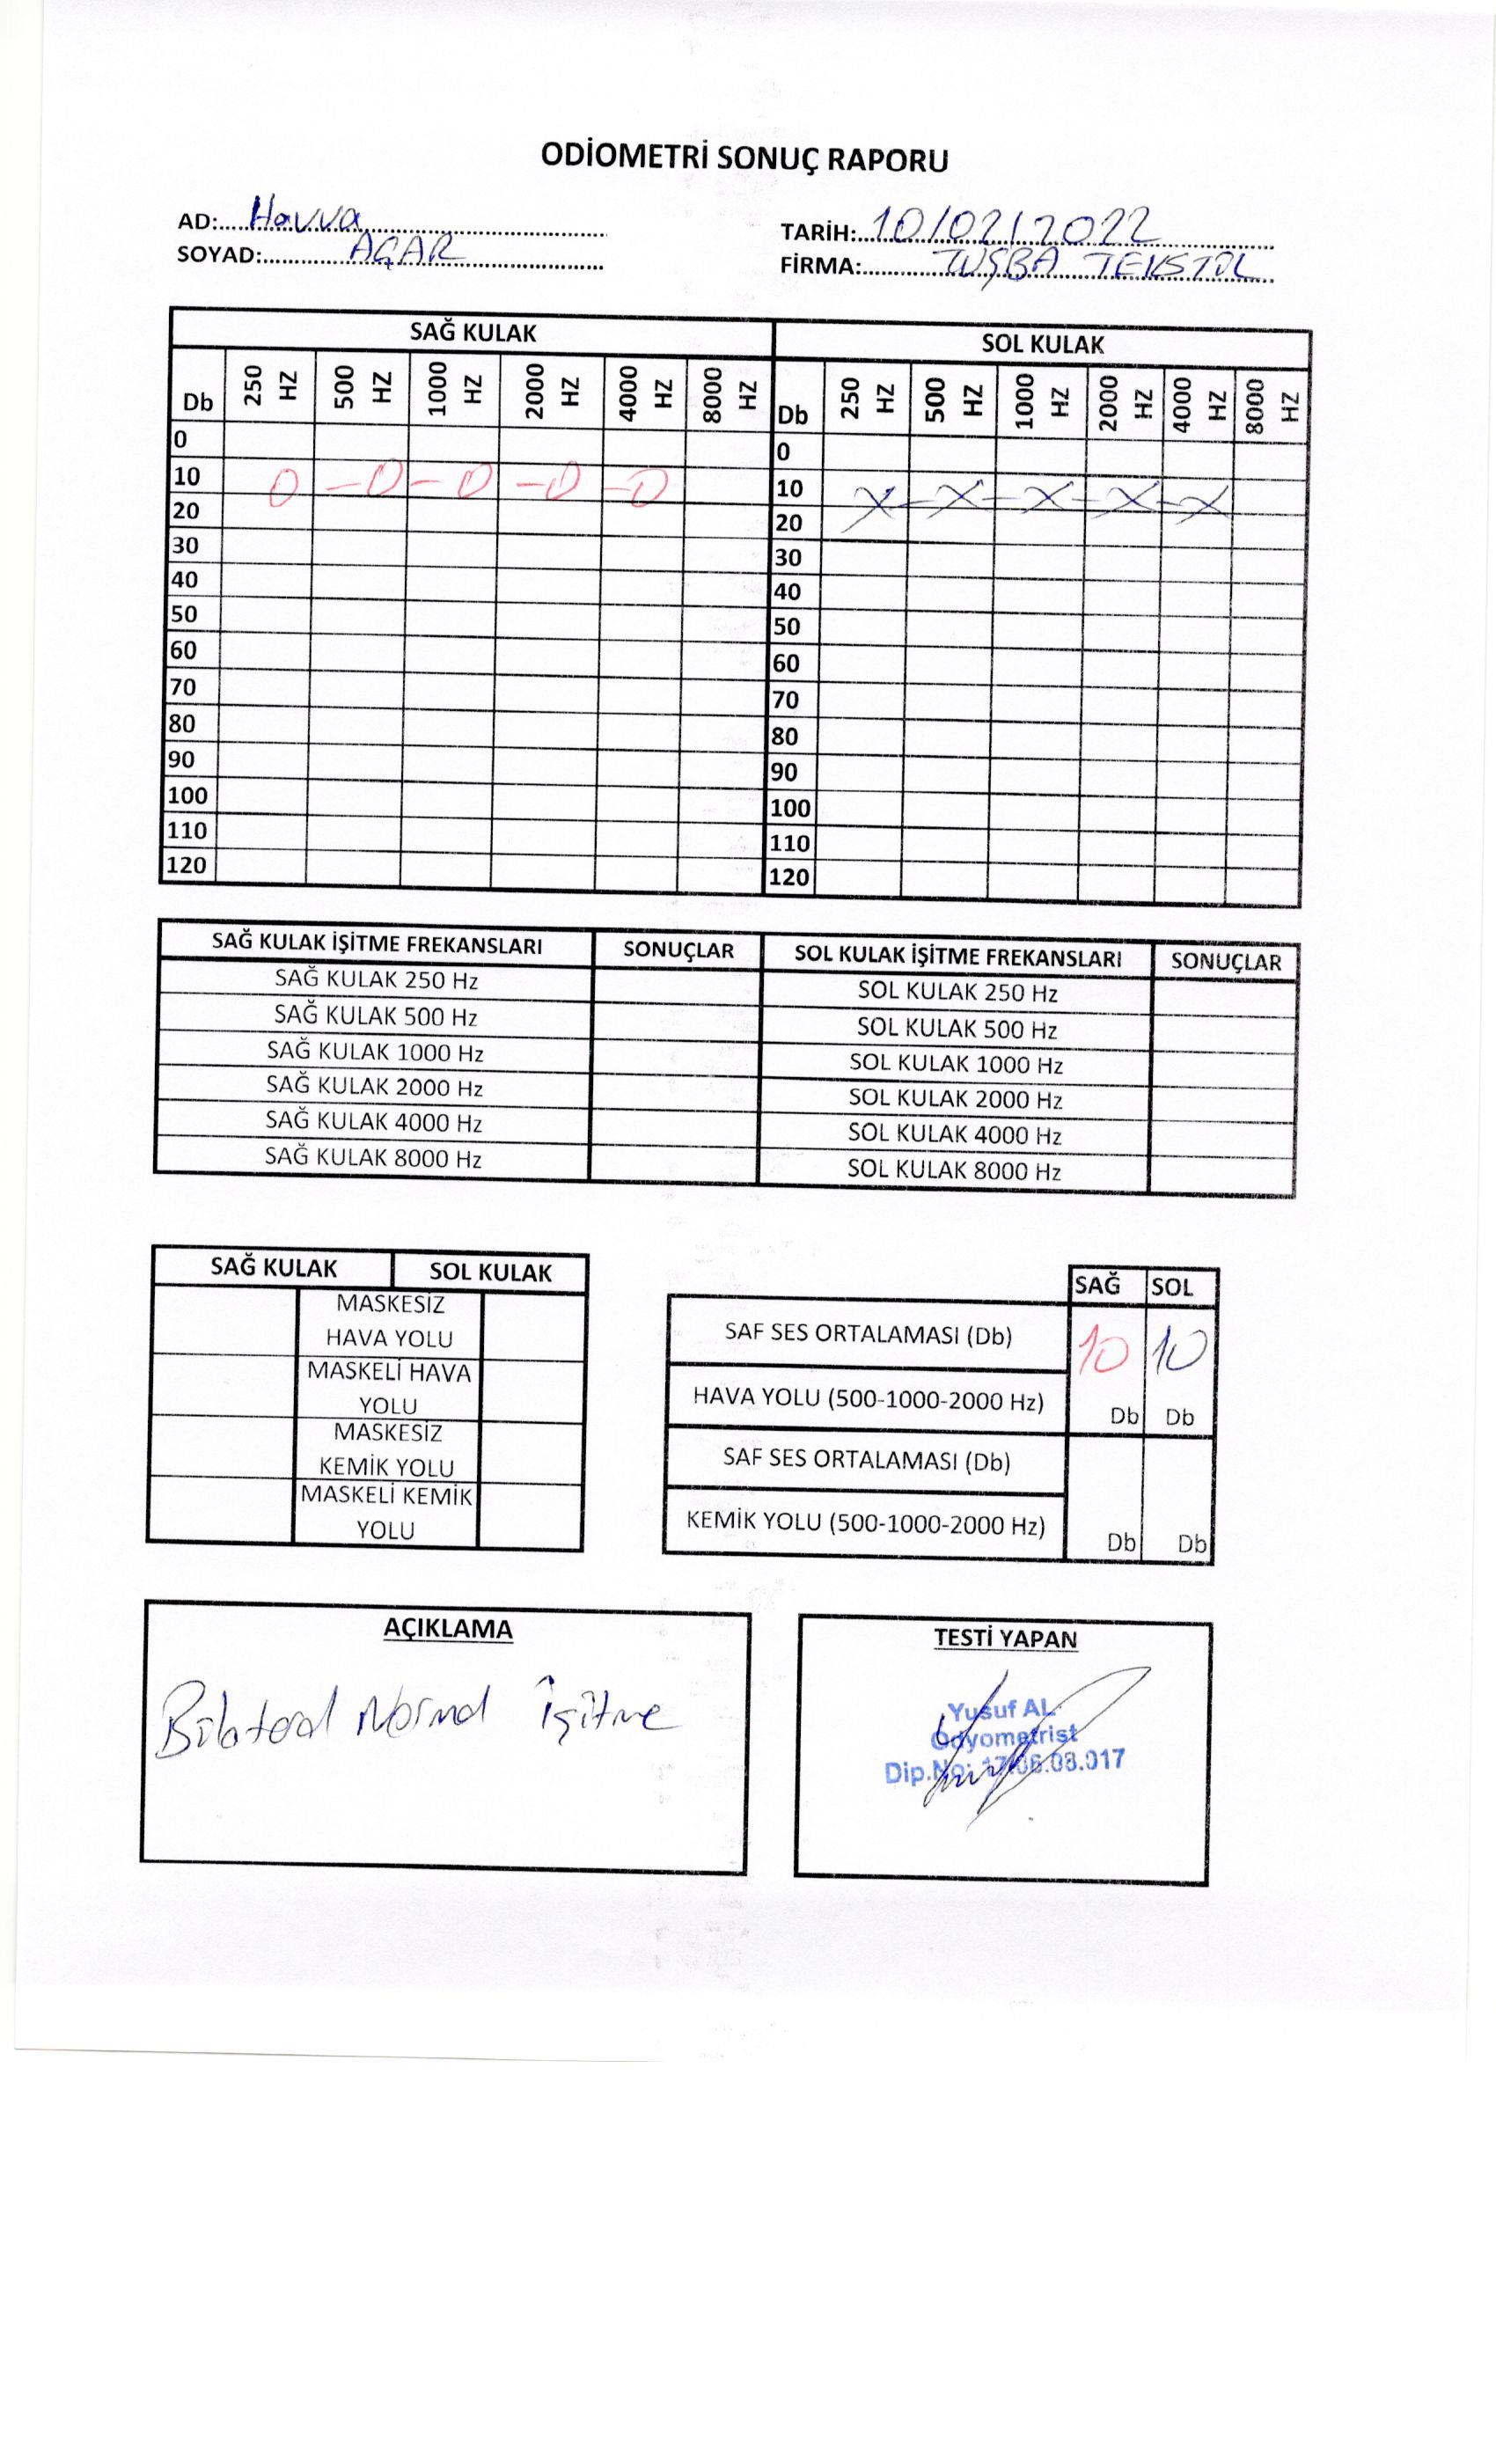 ODİOMETRİ SONUÇ RAPORU
AD: Havva TARİH: 10/02/2022
SOYAD: AÇAR FİRMA: TUŞBA TEKSTİL
SAĞ KULAK SOL KULAK
Db 250 HZ 500 HZ 1000 HZ 2000 HZ 4000 HZ 8000 HZ Db 250 HZ 500 HZ 1000 HZ 2000 HZ 4000 HZ 8000 HZ
0 0
10 O - O - O - O - O 10 X - X - X - X - X
20 20
30 30
40 40
50 50
60 60
70 70
80 80
90 90
100 100
110 110
120 120
SAĞ KULAK İŞİTME FREKANSLARI SONUÇLAR SOL KULAK İŞİTME FREKANSLARI SONUÇLAR
SAĞ KULAK 250 Hz SOL KULAK 250 Hz
SAĞ KULAK 500 Hz SOL KULAK 500 Hz
SAĞ KULAK 1000 Hz SOL KULAK 1000 Hz
SAĞ KULAK 2000 Hz SOL KULAK 2000 Hz
SAĞ KULAK 4000 Hz SOL KULAK 4000 Hz
SAĞ KULAK 8000 Hz SOL KULAK 8000 Hz
SAĞ KULAK SOL KULAK
MASKESİZ
HAVA YOLU
MASKELİ HAVA
YOLU
MASKESİZ
KEMİK YOLU
MASKELİ KEMİK
YOLU
SAĞ SOL
SAF SES ORTALAMASI (Db) 10 10
HAVA YOLU (500-1000-2000 Hz) Db Db
SAF SES ORTALAMASI (Db)
KEMİK YOLU (500-1000-2000 Hz) Db Db
AÇIKLAMA
Bilateral Normal İşitme
TESTİ YAPAN
Yusuf AL
Odyometrist
Dip.No: 17.06.03.017